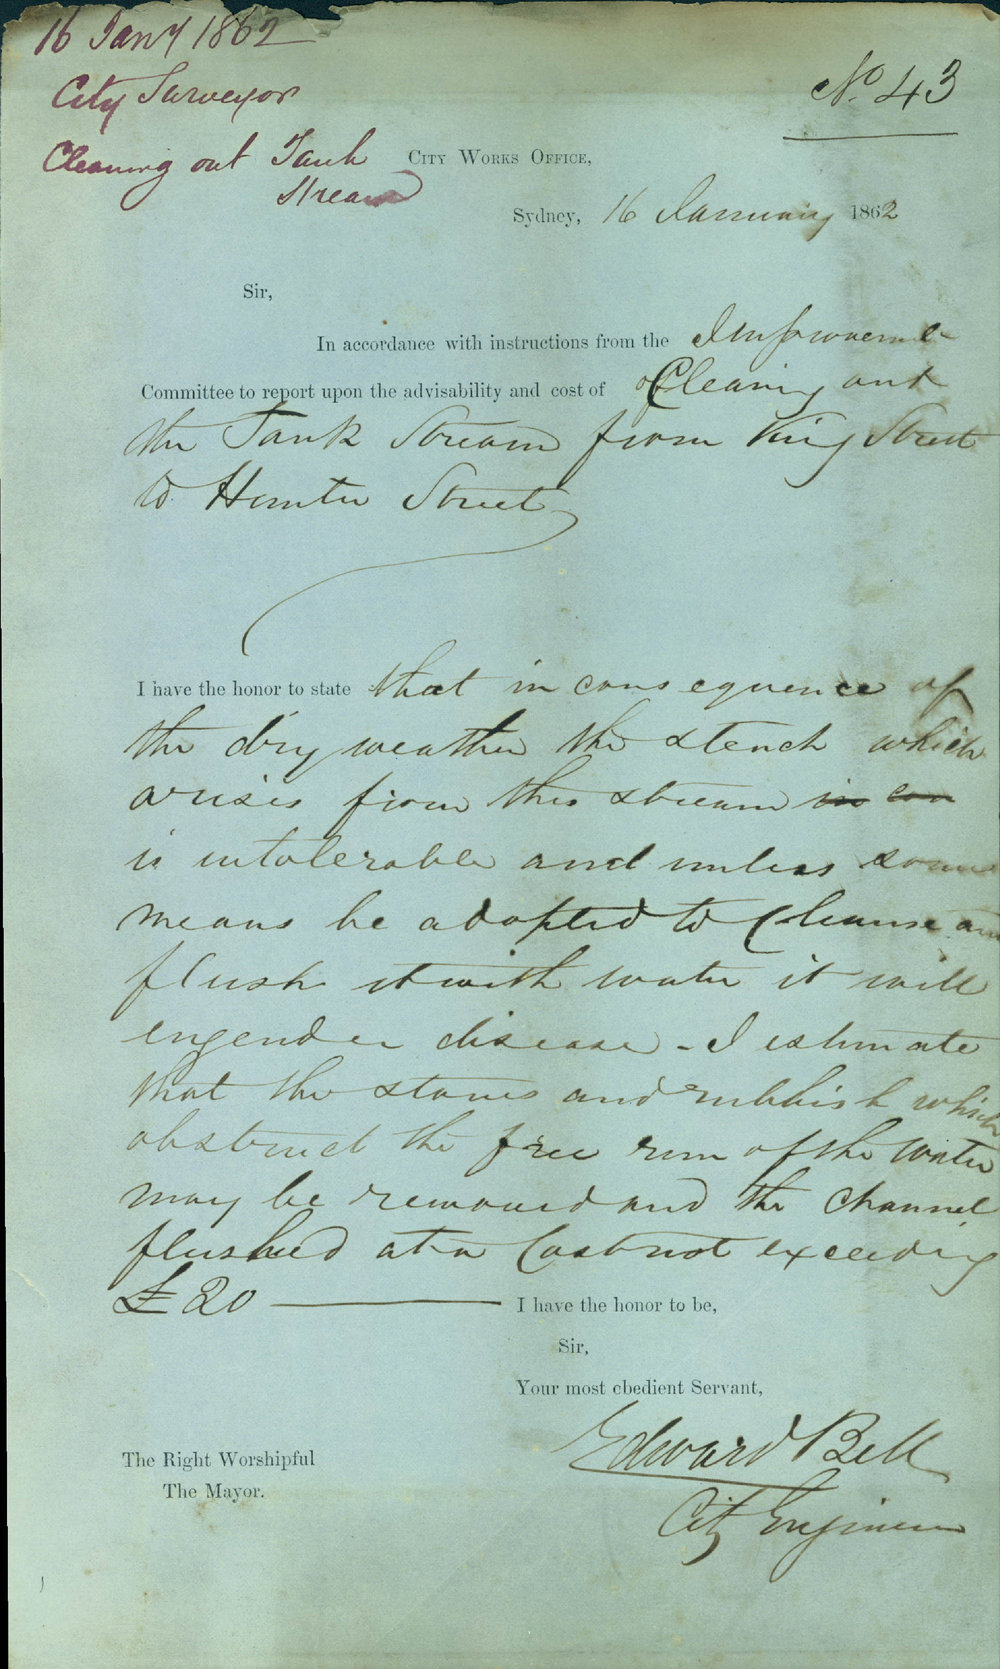 16 Jany 1862
City Surveyor
Cleaning out Tank
Stream
No. 43
City Works Office,
Sydney, 16 January 1862
Sir,
In accordance with instructions from the Improveme
Committee to report upon the advisability and cost of Cleaning out
the Tank Stream from King Street
to Hunter Street
I have the honor to state that in consequence of
the dry weather the stench which
arises from this stream in con
is intolerable and unless some
means be adopted to Cleanse and
flush it with water it will
engender disease - I estimate
that the stones and rubbish which
obstruct the free run of the water
may be removed and the channel
flushed at a Cost not exceeding
£20 I have the honor to be,
Sir,
Your most obedient Servant,
Edward Bell
City Engineer
The Right Worshipful
The Mayor.